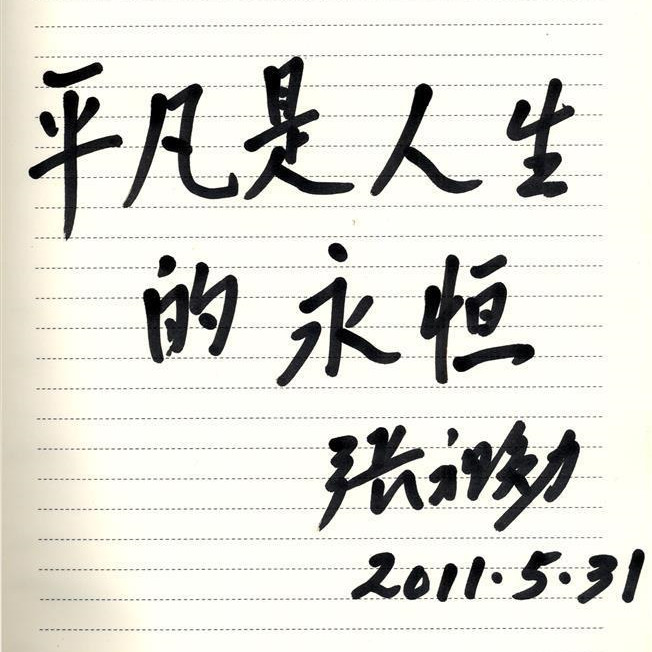 平凡是人生
的永恒
张
2011.5.31